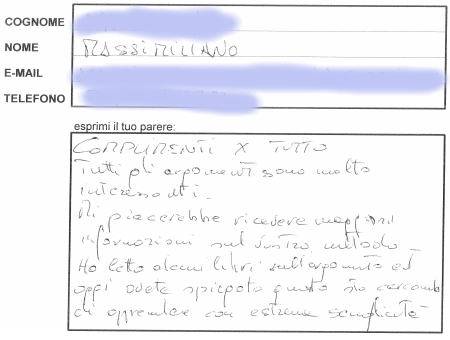 COGNOME
NOME MASSIMILIANO
E-MAIL
TELEFONO
esprimi il tuo parere:
COMPLIMENTI X TUTTO
Tutti gli argomenti sono molto
interessanti.
Mi piacerebbe ricevere maggiori
informazioni sul vostro metodo.
Ho letto alcuni libri sull'argomento ed
oggi avete spiegato quanto sto cercando
di apprendere con estrema semplicità